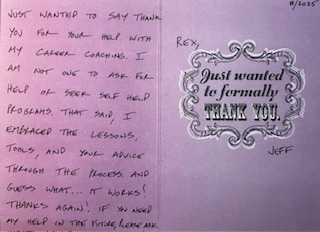 JUST WANTED TO SAY THANK
YOU FOR YOUR HELP WITH
MY CAREER COACHING. I
AM NOT ONE TO ASK FOR
HELP OR SEEK SELF HELP
PROGRAMS. THAT SAID, I
EMBRACED THE LESSONS,
TOOLS, AND YOUR ADVICE
THROUGH THE PROCESS. AND
GUESS WHAT... IT WORKS!
THANKS AGAIN! IF YOU NEED
MY HELP IN THE FUTURE, PLEASE ASK.
8/2025
REX,
Just wanted
to formally
THANK YOU.
JEFF